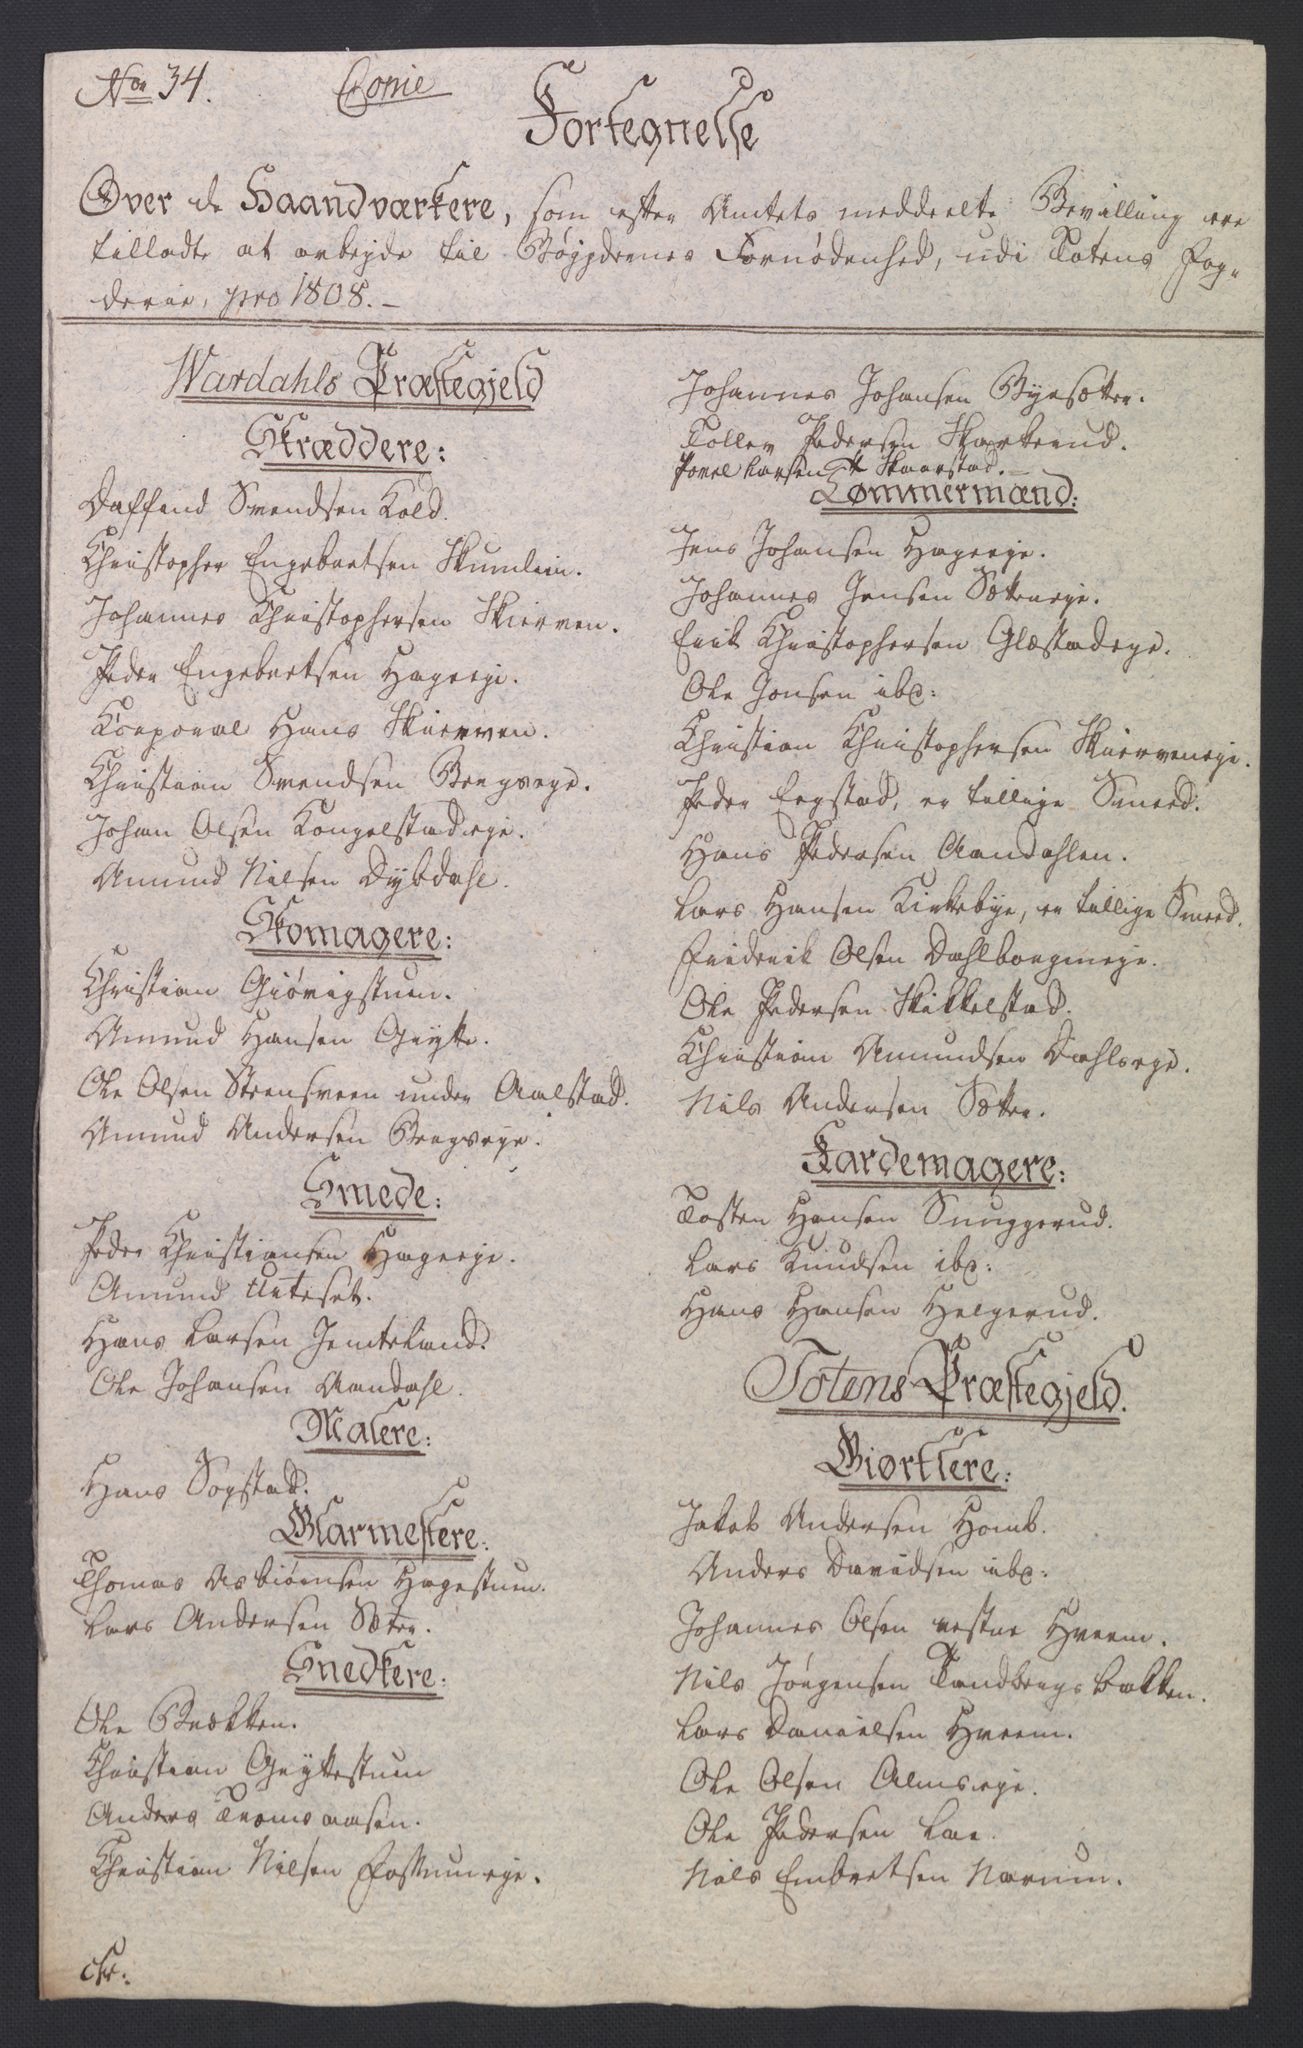 No 34. Copie
Fortegnelse
Over de Haandværkere, som efter Amtets meddeelte Bevilling ere
tilladte at arbejde til Bøygdernes Fornødenhed, udi Totens Fog-
derie, pro 1808. -
Wardahls Præstegjeld
Skræddere:
Daffind Svendsen Kold.
Christopher Engebretsen Skumlien.
Johannes Christophersen Skierven.
Peder Engebretsen Hageeje.
Korporal Hans Skierven.
Christian Svendsen Bergseye.
Johan Olsen Kongelstadeje.
Amund Nilsen Dybdahl.
Skomagere:
Christian Giövigstuen.
Amund Hansen Gryte.
Ole Olsen Steensveen under Aalstad.
Amund Andersen Bergseye.
Smede:
Peder Christiansen Hageeje.
Amund
Hans Larsen Jemteland.
Ole Johansen Aandahl.
Malere:
Hans Sogstad.
Glarmestere:
Thomas Asbiörnsen Hagestuen.
Lars Andersen Sæter.
Snedkere:
Ole Brækken.
Christian Gryttestuen
Anders Tromsaasen.
Christian Nilsen Fossumeje.
Johannes Johansen Byesætter.
Tollev Pedersen Skarterud.
Povel Larsen Skaarstad.
Tømmermænd:
Jens Johansen Hageeje.
Johannes Jensen Sætereje.
Erik Christophersen Glæstadeye.
Ole Jonsen ibd:
Christian Christophersen Skierveneje.
Peder Eegstad, er tillige Smeed.
Hans Pedersen Aandahlen.
Lars Hansen Kirkebye, er tillige Smeed.
Friderik Olsen Dahlborgmeje.
Ole Pedersen Skikkelstad.
Christian Amundsen Dahlseye.
Nils Andersen Sætter.
Kardemagere:
Tosten Hansen Snuggerud.
Lars Knudsen ibd:
Hans Hansen Helgerud.
Totens Præstegjeld.
Giørtlere:
Jakob Andersen Homb.
Anders Davidsen ibd:
Johannes Olsen vestre Hveem.
Nils Jörgensen Tandbergsbakken.
Lars Danielsen Hveem.
Ole Olsen Almseje.
Ole Pedersen Lae.
Niels Embretsen Narum.